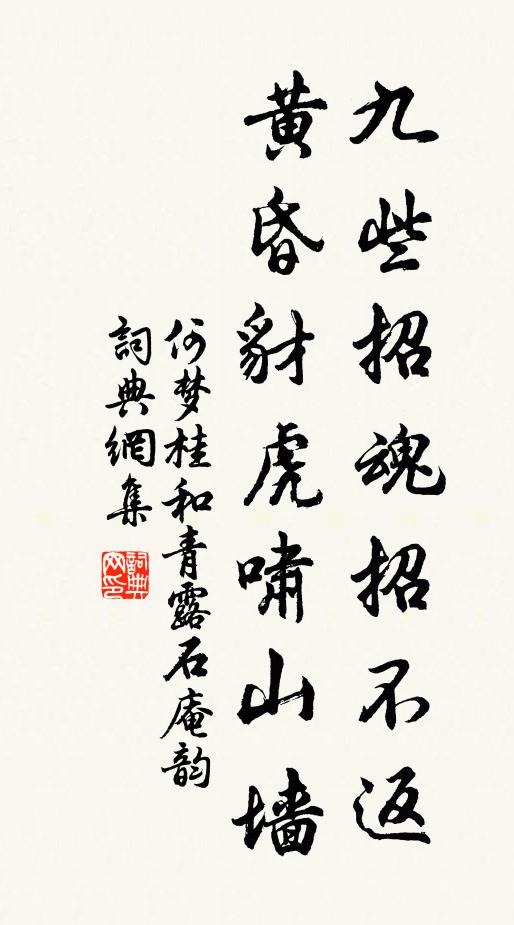 九些招魂招不返
黄昏豺虎啸山墙
何梦桂和青露石庵韵
詞典網集
詞典
网印